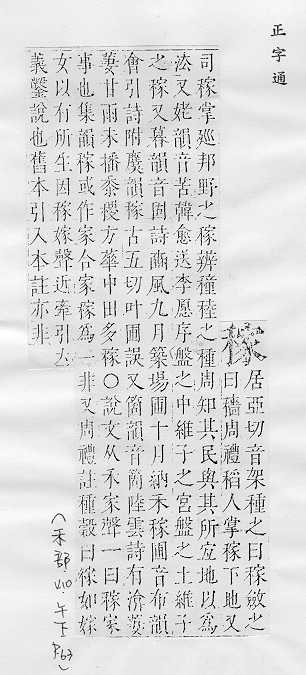 正字通
稼
居亞切音架種之曰稼斂之
曰穡周禮稻人掌稼下地又
司稼掌廵邦野之稼辨穜稑之種周知其民與其所宜地以爲
法又姥韻音苦韓愈送李愿序盤之中維子之宮盤之土維子
之稼又暮韻音固詩豳風九月築場圃十月納禾稼圃音布韻
會引詩附麌韻稼古五切叶圃誤又箇韻音箇陸雲詩有渰萋
萋甘雨未播黍稷方華中田多稼○說文从禾家聲一曰稼家
事也集韻稼或作家合家稼爲一非又周禮註種穀曰稼如嫁
女以有所生因稼嫁聲近牽引
義鑿說也舊本引入本註亦非
(禾部 午下 P67)